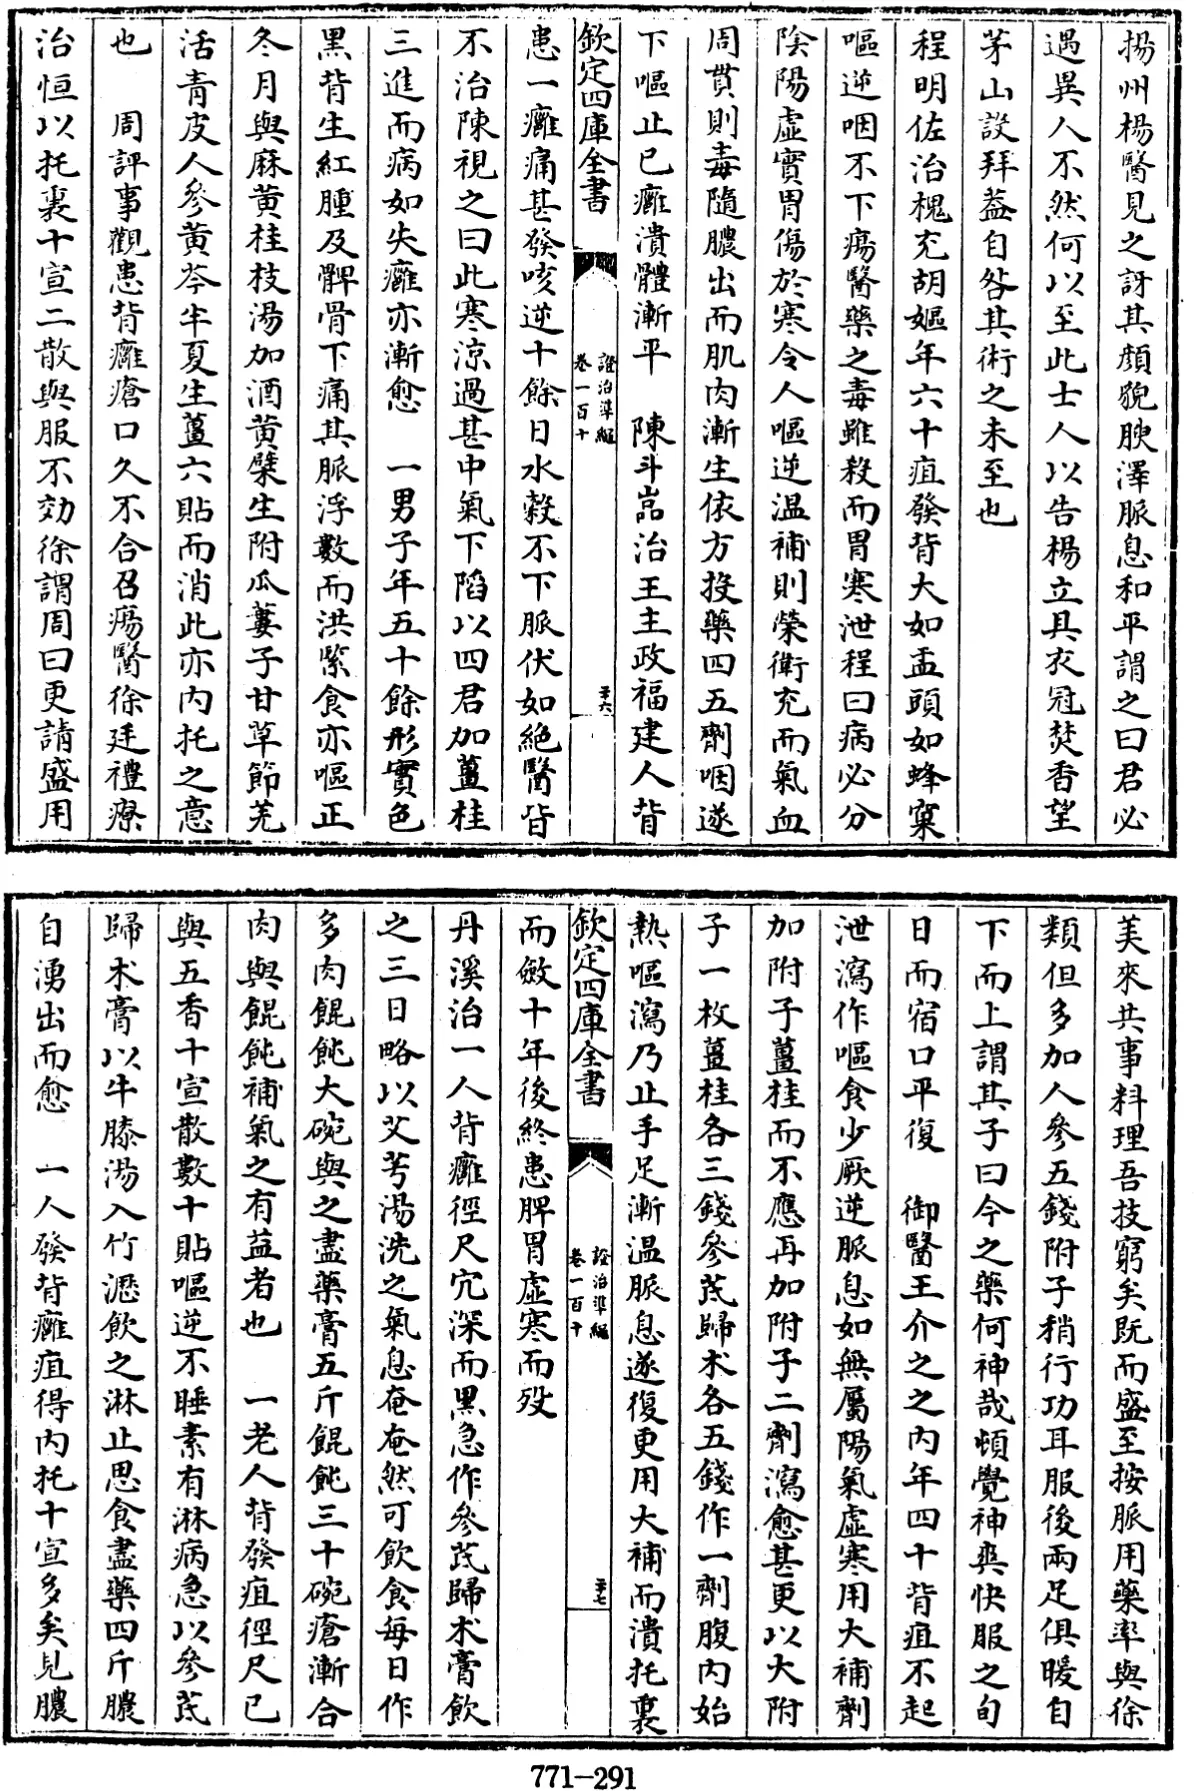 揚州楊醫見之訝其顏貌腴澤脈息和平謂之曰君必
遇異人不然何以至此士人以告楊立具衣冠焚香望
茅山設拜葢自咎其術之未至也
程明佐治槐充胡嫗年六十疽發背大如盂頭如蜂窠
嘔逆咽不下瘍醫藥之毒雖殺而胃寒泄程曰病必分
陰陽虛實胃傷於寒令人嘔逆温補則榮衛充而氣血
周貫則毒隨膿出而肌肉漸生依方投藥四五劑咽遂
下嘔止已癰潰體漸平　陳斗嵓治王主政福建人背
欽定四庫全書　證治準繩　卷一百十　三十六
患一癰痛甚發咳逆十餘日水穀不下脈伏如絶醫皆
不治陳視之曰此寒涼過甚中氣下陷以四君加薑桂
三進而病如失癰亦漸愈　一男子年五十餘形實色
黑背生紅腫及髀骨下痛其脈浮數而洪緊食亦嘔正
冬月與麻黄桂枝湯加酒黄檗生附瓜蔞子甘草節羌
活青皮人參黄芩半夏生薑六貼而消此亦内托之意
也　周評事觀患背癰瘡口久不合召瘍醫徐廷禮療
治恒以托裏十宣二散與服不効徐謂周曰更請盛用
美來共事料理吾技窮矣既而盛至按脈用藥率與徐
類但多加人參五錢附子稍行功耳服後兩足俱暖自
下而上謂其子曰今之藥何神哉頓覺神爽快服之旬
日而宿口平復　御醫王介之之内年四十背疽不起
泄瀉作嘔食少厥逆脈息如無屬陽氣虛寒用大補劑
加附子薑桂而不應再加附子二劑瀉愈甚更以大附
子一枚薑桂各三錢參茋歸术各五錢作一劑腹内始
熱嘔瀉乃止手足漸温脈息遂復更用大補而潰托裏
欽定四庫全書　證治準繩　卷一百十　三十七
而斂十年後終患脾胃虛寒而殁
丹溪治一人背癰徑尺穴深而黑急作參茋歸术膏飲
之三日略以艾芎湯洗之氣息奄奄然可飲食每日作
多肉餛飩大碗與之盡藥膏五斤餛飩三十碗瘡漸合
肉與餛飩補氣之有益者也　一老人背發疽徑尺已
與五香十宣散數十貼嘔逆不睡素有淋病急以參茋
歸术膏以牛膝湯入竹瀝飲之淋止思食盡藥四斤膿
自湧出而愈　一人發背癰疽得内托十宣多矣見膿
771-291